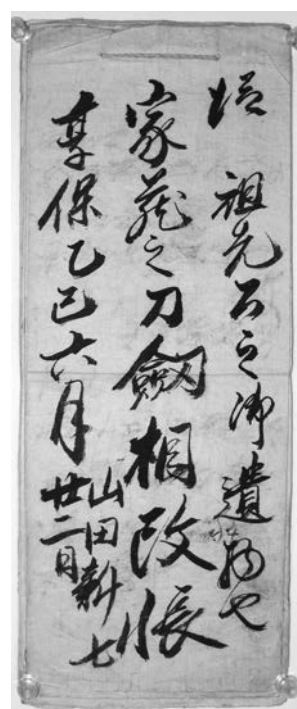 祖先公之御遺物也
家蔵之刀劔相改帳
享保乙巳六月
廿二日
山田新七